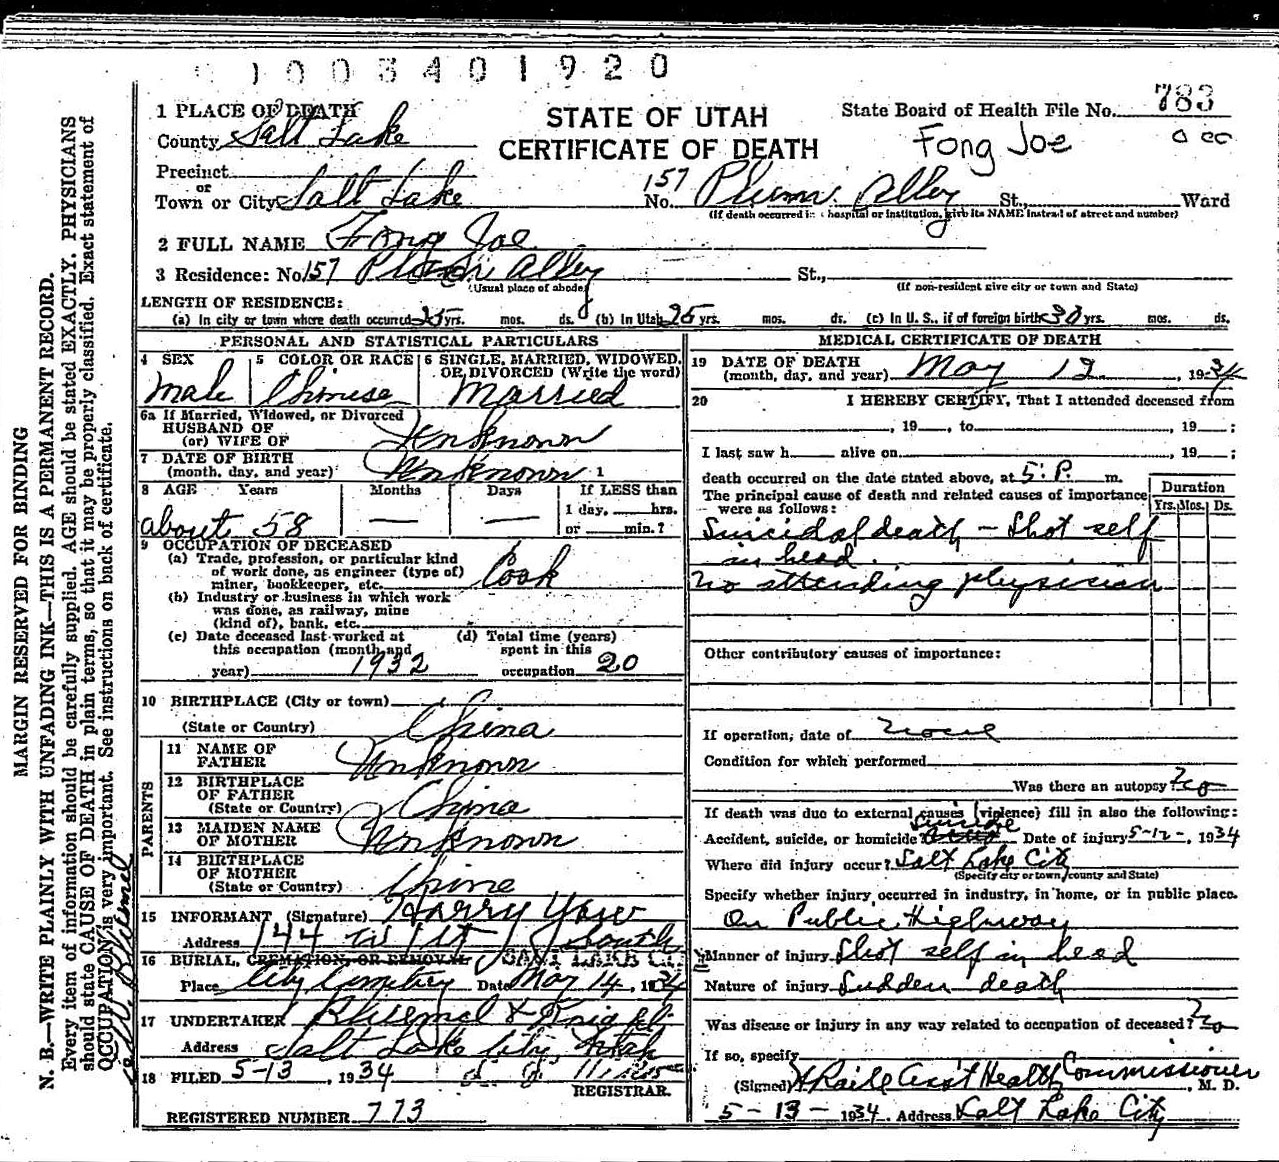 1003401920
1 PLACE OF DEATH
County Salt Lake
Precinct
or
Town or City Salt Lake
STATE OF UTAH
CERTIFICATE OF DEATH
State Board of Health File No. 783
Fong Joe
No. 157 Plum Alley St., Ward
(If death occurred in a hospital or institution, give its NAME instead of street and number)
2 FULL NAME Fong Joe
3 Residence: No. 157 Plum Alley St.,
(Usual place of abode) (If non-resident give city or town and State)
LENGTH OF RESIDENCE:
(a) In city or town where death occurred 25 yrs. mos. ds. (b) In Utah 25 yrs. mos. ds. (c) In U. S., if of foreign birth 30 yrs. mos. ds.
PERSONAL AND STATISTICAL PARTICULARS
4 SEX Male
5 COLOR OR RACE Chinese
6 SINGLE, MARRIED, WIDOWED, OR DIVORCED (Write the word) Married
6a If Married, Widowed, or Divorced
HUSBAND OF
(or) WIFE OF Unknown
7 DATE OF BIRTH
(month, day, and year) Unknown 1
8 AGE Years Months Days If LESS than
1 day, hrs.
about 58 — — or min.?
9 OCCUPATION OF DECEASED
(a) Trade, profession, or particular kind
of work done, as engineer (type of)
miner, bookkeeper, etc. Cook
(b) Industry or business in which work
was done, as railway, mine
(kind of), bank, etc.
(c) Date deceased last worked at
this occupation (month and
year) 1932
(d) Total time (years)
spent in this
occupation 20
10 BIRTHPLACE (City or town)
(State or Country) China
PARENTS
11 NAME OF
FATHER Unknown
12 BIRTHPLACE
OF FATHER
(State or Country) China
13 MAIDEN NAME
OF MOTHER Unknown
14 BIRTHPLACE
OF MOTHER
(State or Country) China
15 INFORMANT (Signature) Harry Yow
Address 144 W 1st South
16 BURIAL, CREMATION, OR REMOVAL SALT LAKE CITY
Place City Cemetery Date May 14, 1934
17 UNDERTAKER
Address Salt Lake City, Utah
18 FILED 5-13, 1934
REGISTRAR.
REGISTERED NUMBER 773
MEDICAL CERTIFICATE OF DEATH
19 DATE OF DEATH
(month, day, and year) May 12, 1934
20 I HEREBY CERTIFY, That I attended deceased from
, 19 , to , 19 ;
I last saw h alive on , 19 ;
death occurred on the date stated above, at 5:P. m.
The principal cause of death and related causes of importance
were as follows:
Duration
Yrs. Mos. Ds.
Suicidal death – Shot self
in head.
No attending physician
Other contributory causes of importance:
If operation, date of none
Condition for which performed
Was there an autopsy? no
If death was due to external causes (violence) fill in also the following:
Accident, suicide, or homicide? Suicide Date of injury 5-12-, 1934
Where did injury occur? Salt Lake City
(Specify city or town, county and State)
Specify whether injury occurred in industry, in home, or in public place.
On Public Highway
Manner of injury Shot self in head
Nature of injury Sudden death
Was disease or injury in any way related to occupation of deceased? no
If so, specify
(Signed) Ass't Health Commissioner, M. D.
5-13-1934. Address Salt Lake City
MARGIN RESERVED FOR BINDING
N. B.—WRITE PLAINLY WITH UNFADING INK—THIS IS A PERMANENT RECORD.
Every item of information should be carefully supplied. AGE should be stated EXACTLY. PHYSICIANS
should state CAUSE OF DEATH in plain terms, so that it may be properly classified. Exact statement of
OCCUPATION is very important. See instructions on back of certificate.